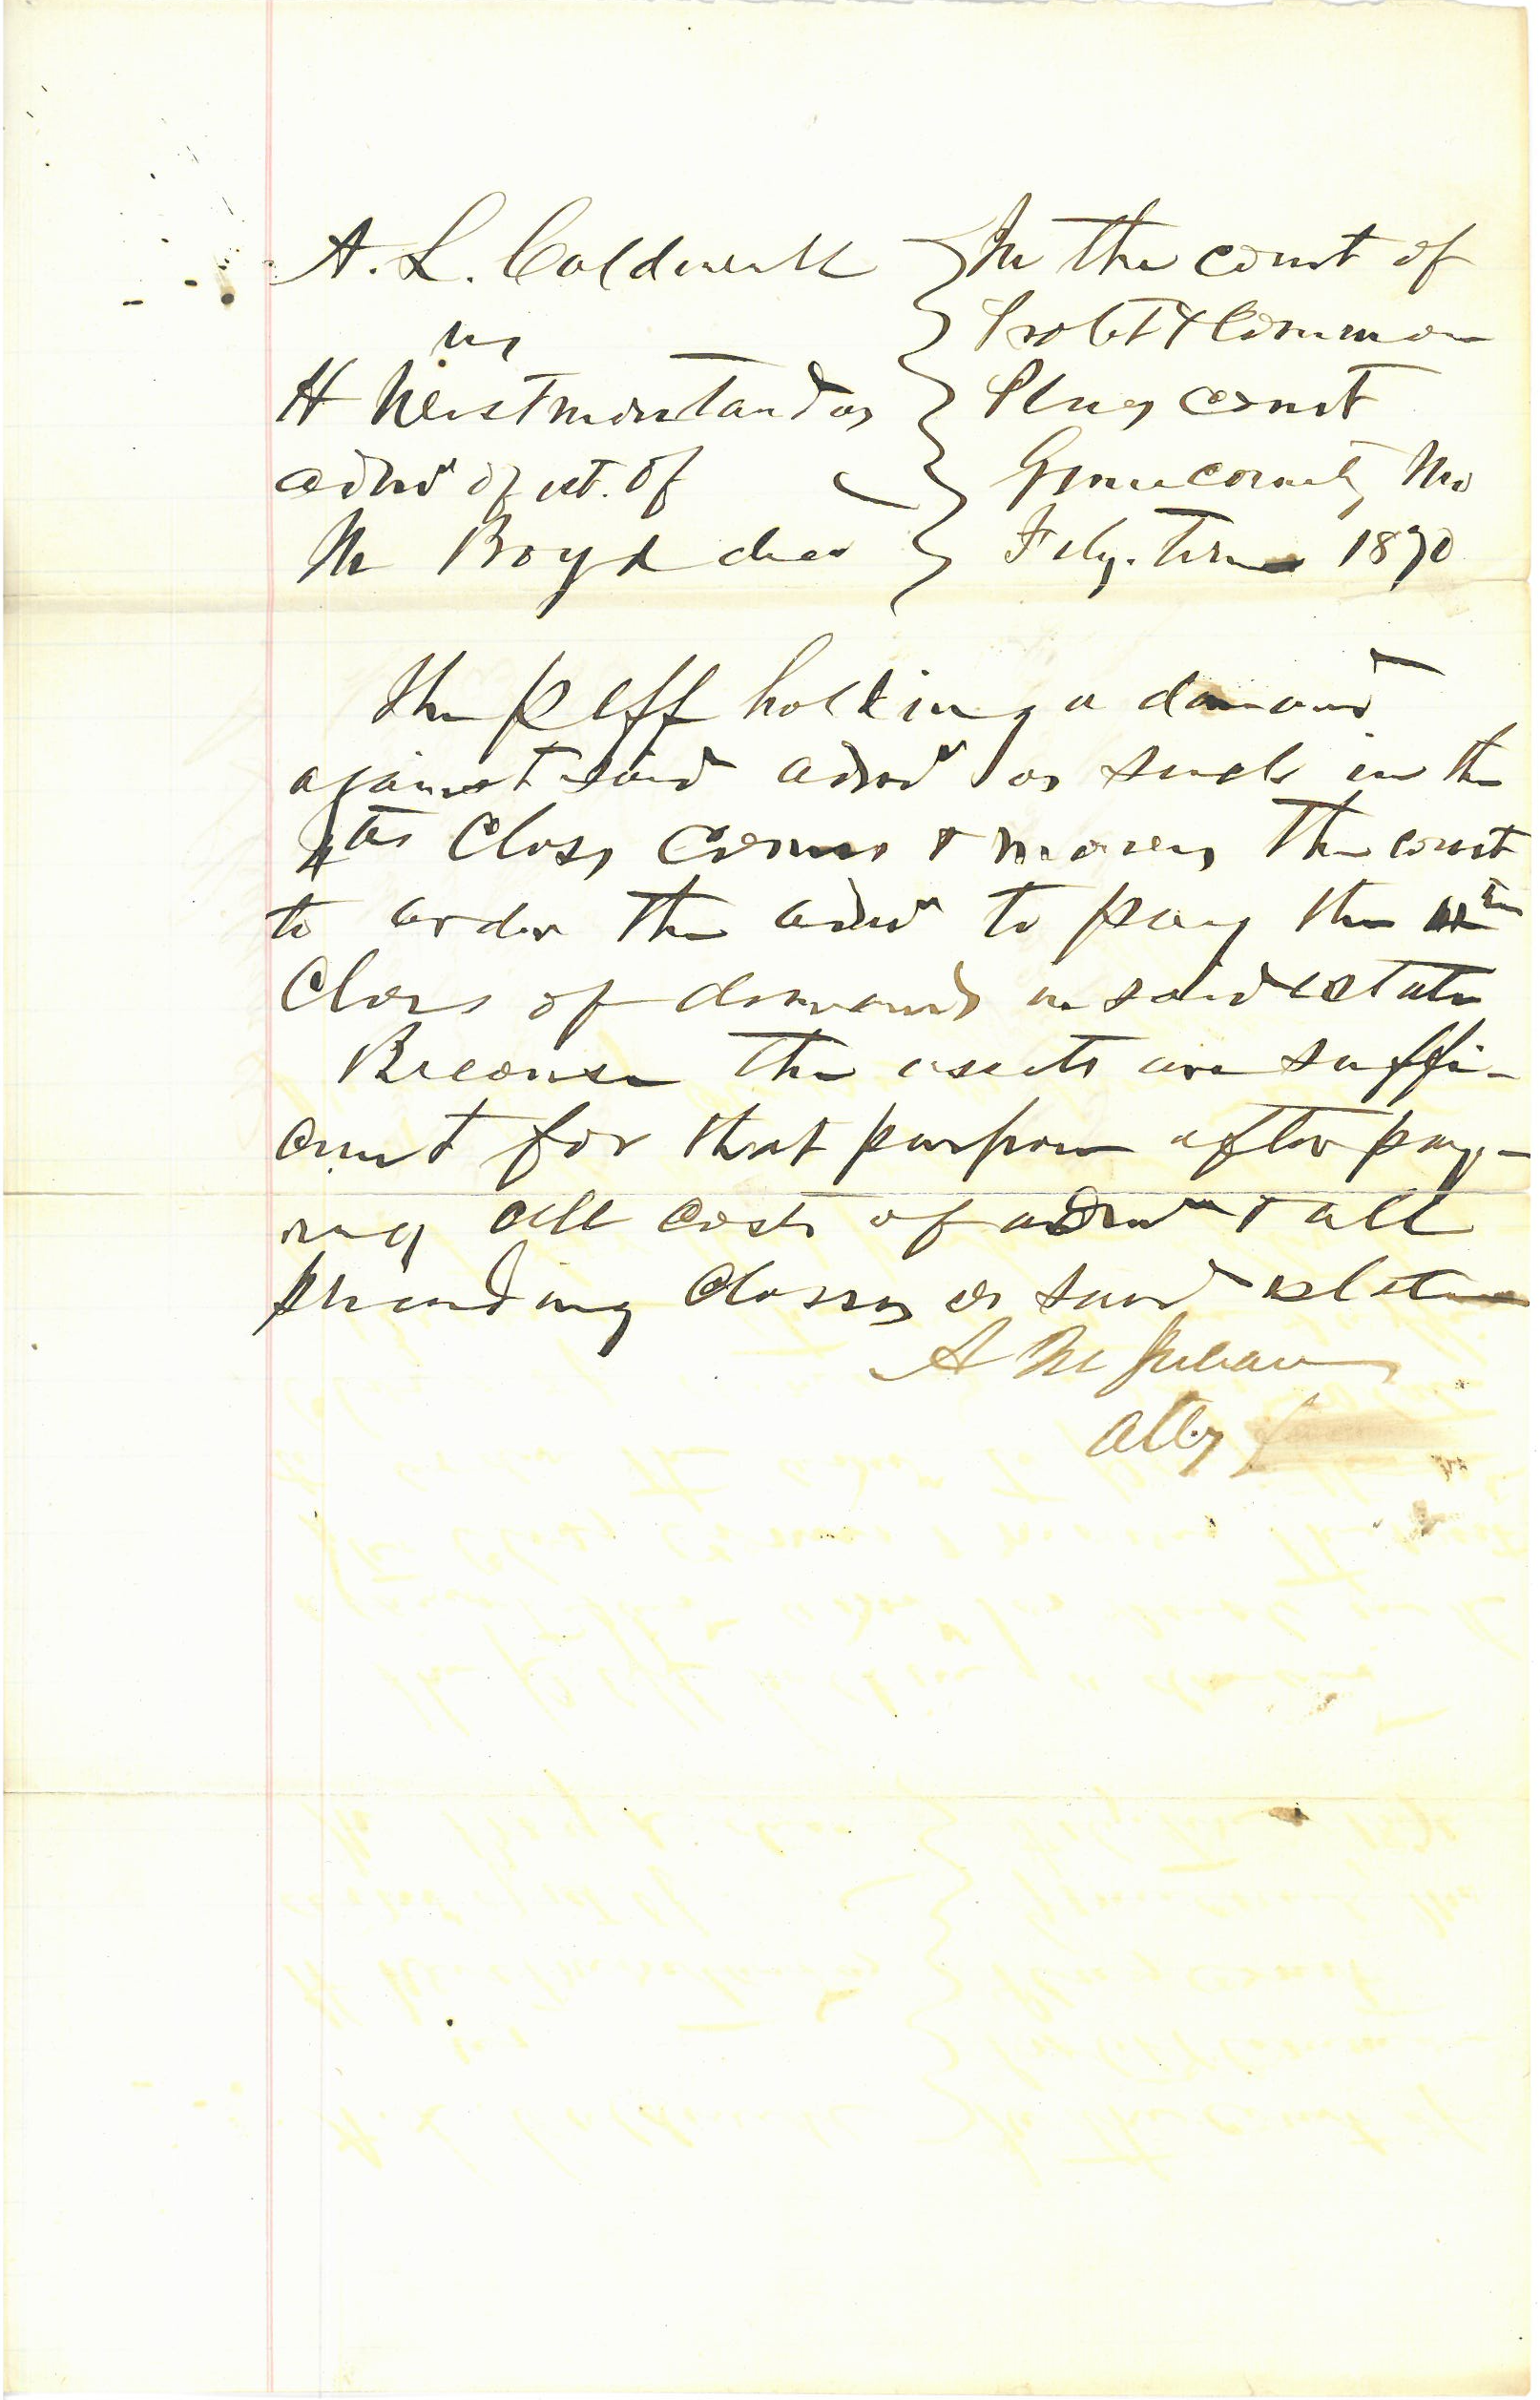 A. L. Caldwell } In the court of
vs } Probt & Common
H Westmoreland as } Pleas court
admr of est. of } Greene county Mo
M Boyd decd } Feby. Term 1870
The plff holding a demand
against said admr as such in the
class comes & moves the court
to order the admr to pay the
class of demands in said estate
Because the assets are suffi-
cient for that purpose after pay-
ing all costs of admn & all
preceding classes in said estate
A M Julian
atty